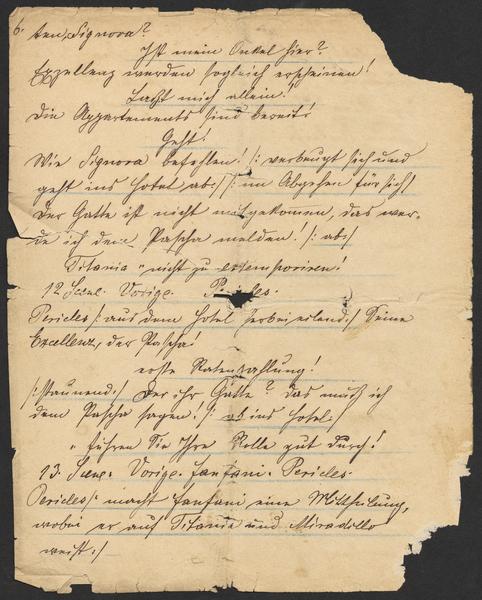 6.
ten, Signora?
Ist mein Onkel hier?
Exzellenz werden sogleich erscheinen!
Laßt mich allein!
Die Appartements sind bereit!
Geht!
Wie Signora befehlen! /: verbeugt sich und
geht ins Hotel ab:/ /: im Abgehen für sich/
Der Gatte ist nicht mitgekommen, das wer-
de ich dem Pascha melden! /: ab:/
Titania " nicht zu extemporiren!
12 Scene. Vorige. Pericles.
Pericles /: aus dem Hotel herbeieilend:/ Seine
Excellenz, der Pascha!
erste Ratenzahlung!
/: staunend:/ Der ihr Gatte? Das muß ich
dem Pascha sagen. /: ab ins Hotel.
" führen Sie Ihre Rolle gut durch!
13. Scene. Vorige. Fanfani. Pericles.
Pericles /: macht Fanfani eine Mittheilung,
wobei er auf Titania und Miradillo
weist:/